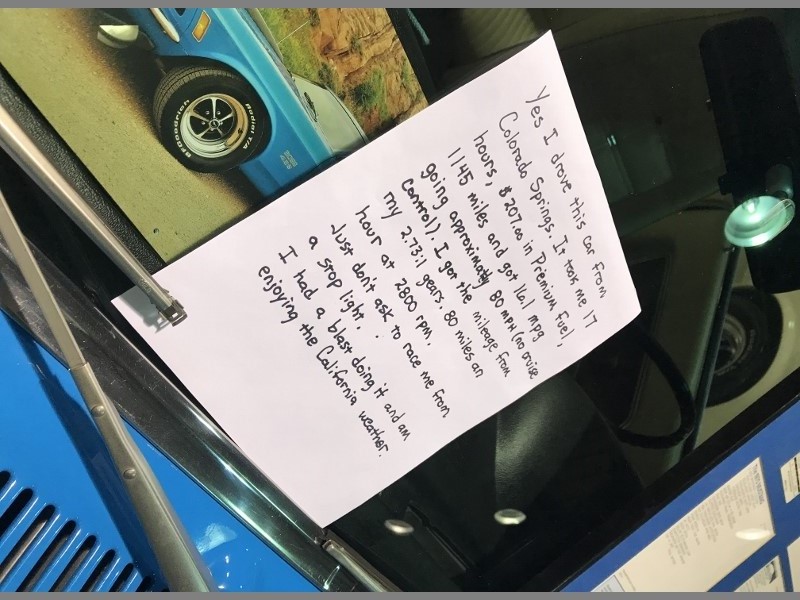 Yes I drove this car from
Colorado Springs. It took me 17
hours, $207.00 in Premium Fuel,
1,145 miles and got 16.1 mpg
going approximately 80 MPH (no cruise
control). I got the mileage from
my 2.73:1 gears. 80 miles an
hour at 2800 rpm.
Just don't ask to race me from
a stop light.
I had a blast doing it and am
enjoying the California weather.
BFGoodrich
Radial T/A